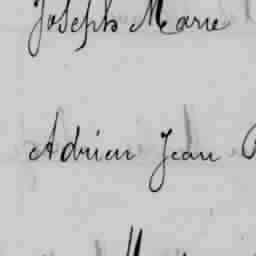 Joseph Marie
Adrien Jean